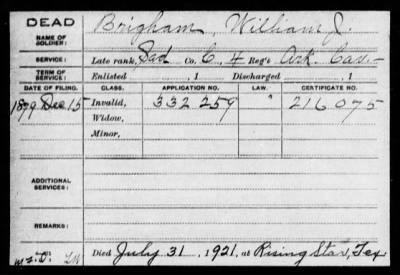 DEAD
NAME OF SOLDIER: Brigham, William J.
SERVICE: Late rank, Sad Co. C, 4 Reg't Ark. Cav.
TERM OF SERVICE: Enlisted , 1 Discharged , 1
DATE OF FILING. CLASS. APPLICATION NO. LAW. CERTIFICATE NO.
1879 Dec 15 Invalid, 332 259 " 216075
Widow,
Minor,
ADDITIONAL SERVICES:
REMARKS:
Died July 31, 1921, at Rising Star, Tex